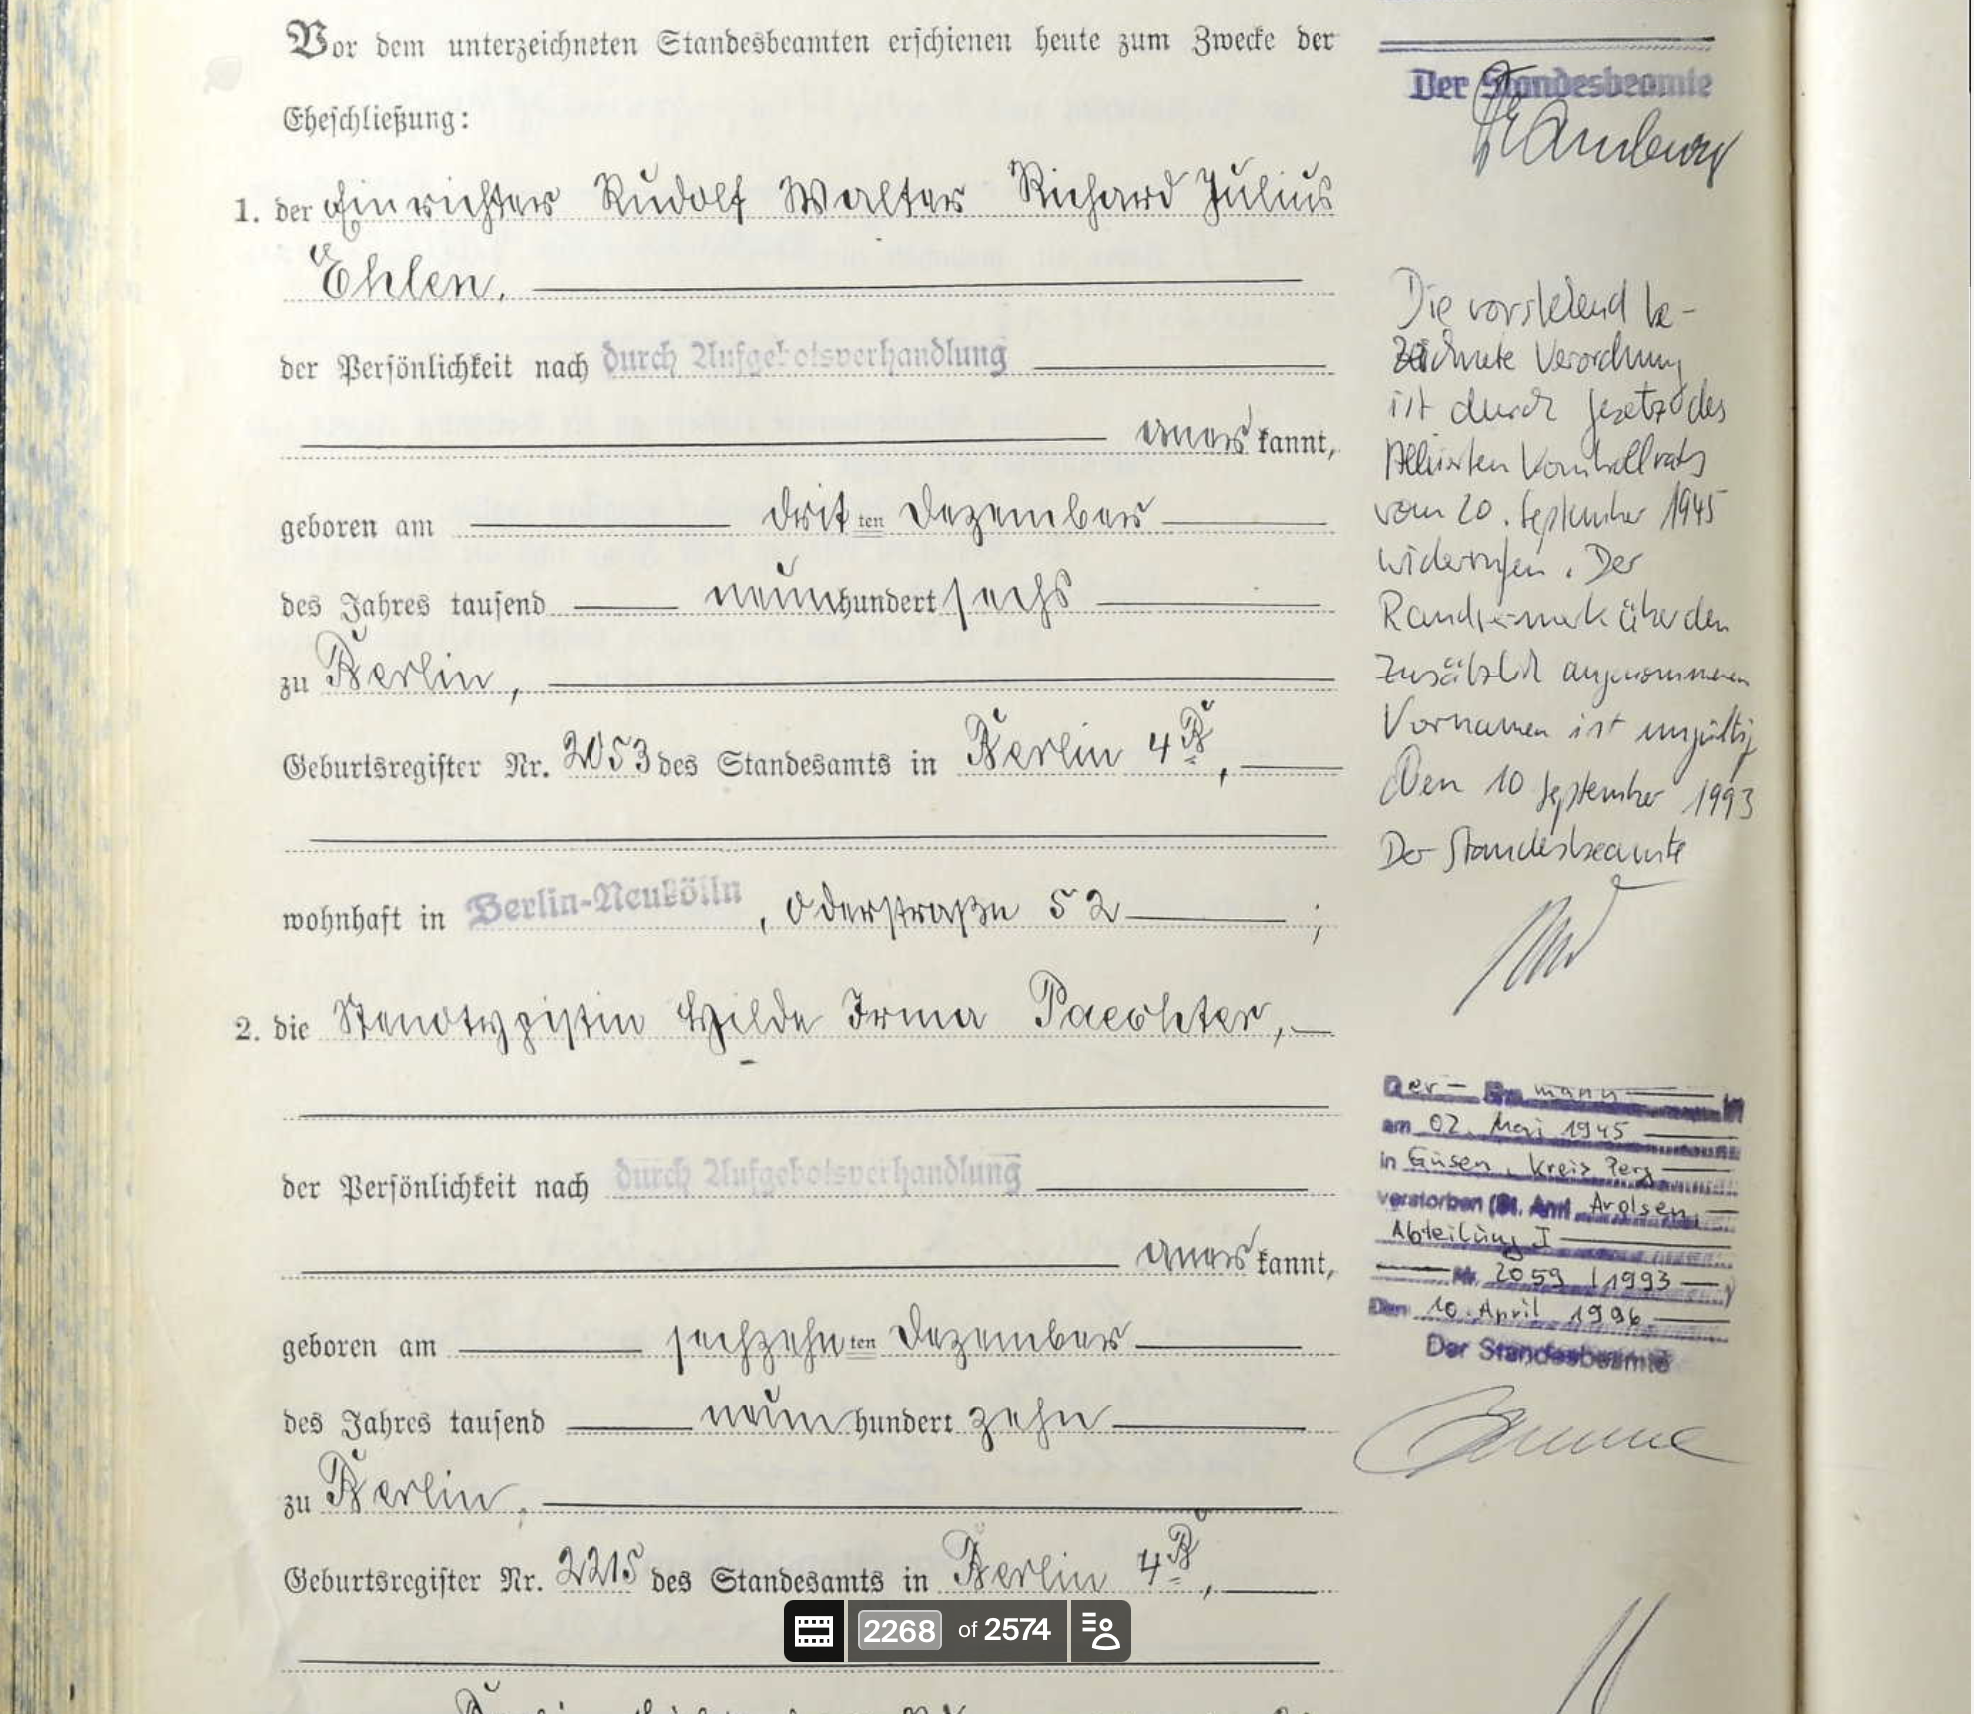 Vor dem unterzeichneten Standesbeamten erschienen heute zum Zwecke der
Eheschließung:
1. der Einrichter Rudolf Walter Richard Julius
Ehlen,
der Persönlichkeit nach durch Aufgebotsverhandlung
aner kannt,
geboren am drit ten Dezember
des Jahres tausend neunhundert sechs
zu Berlin,
Geburtsregister Nr. 2053 des Standesamts in Berlin 4B,
wohnhaft in Berlin-Neukölln, Oderstraße 52 ;
2. die Stenotypistin Hilde Irma Paechter,
der Persönlichkeit nach durch Aufgebotsverhandlung
aner kannt,
geboren am sechzehn ten Dezember
des Jahres tausend neun hundert zehn
zu Berlin,
Geburtsregister Nr. 2215 des Standesamts in Berlin 4B,
Der Standesbeamte
Die vorstehend be-
zeichnete Verordnung
ist durch Gesetz des
Alliierten Kontrollrats
vom 20. September 1945
widerrufen. Der
Randvermerk über den
zusätzlich angenommenen
Vornamen ist ungültig
Den 10 September 1993
Der Standesbeamte
Der - Ehemann
am 02. Mai 1945
in Gusen, Kreis Perg
verstorben (St. Amt Arolsen,
Abteilung I
Nr. 2059 / 1993 )
Den 10. April 1996
Der Standesbeamte
2268 of 2574